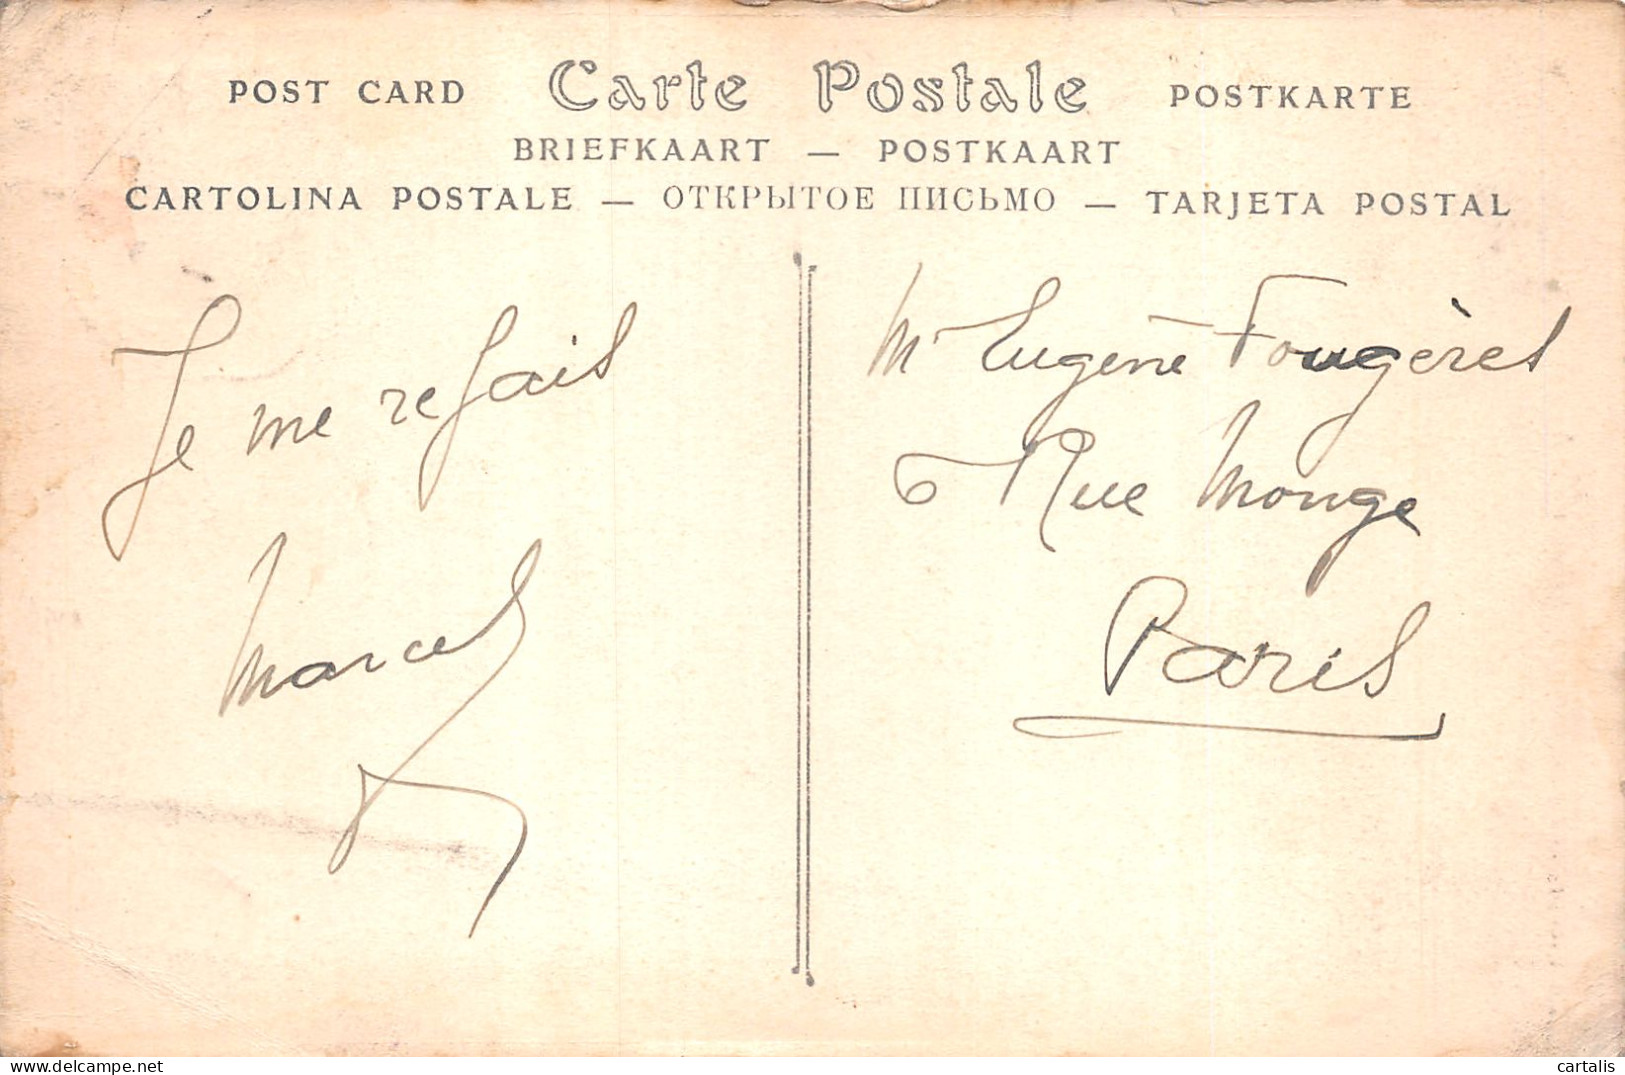 POST CARD Carte Postale POSTKARTE
BRIEFKAART — POSTKAART
CARTOLINA POSTALE — ОТКРЫТОЕ ПИСЬМО — TARJETA POSTAL
Je me refais
Marcel
Mr Eugène Fougères
6 Rue Monge
Paris
www.delcampe.net
cartalis